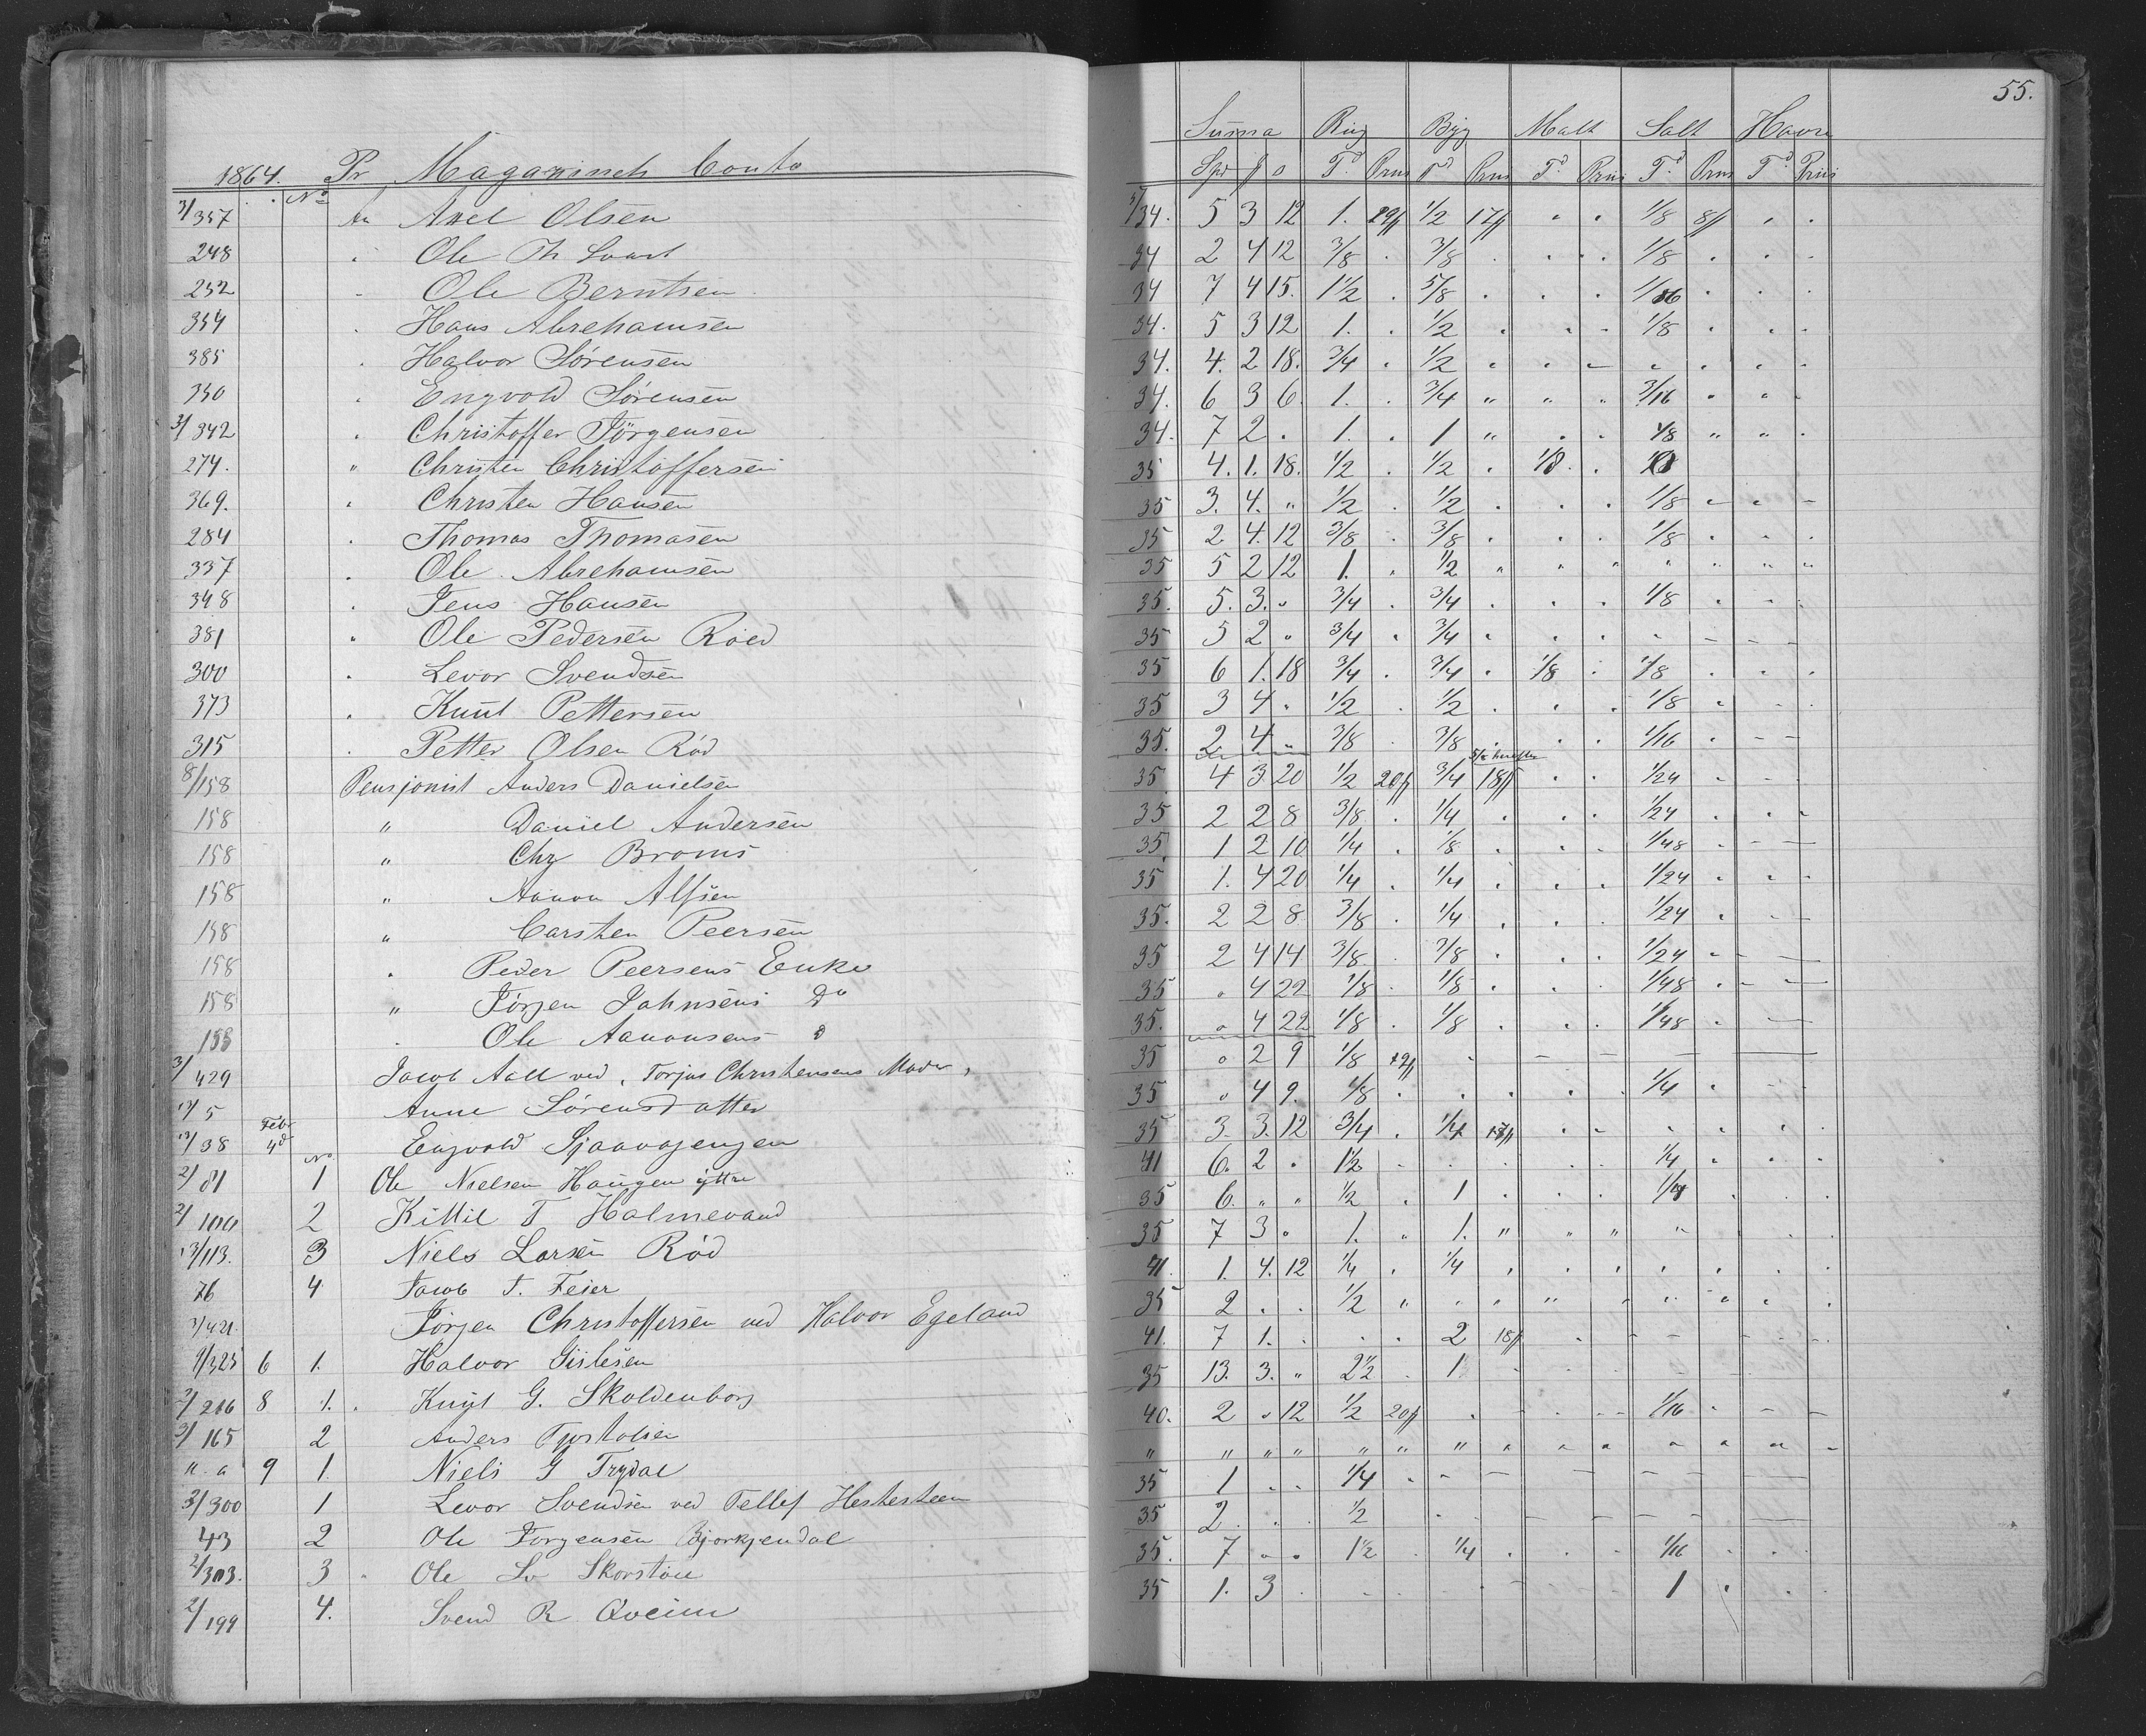 55.
1864. Pr Magazinets Conto
No
3/357 An Axel Olsen
248 " Ole Th
252 " Ole Berntsen
354 " Hans Abrehamsen
385 " Halvor Sørensen
350 " Engvold Sørensen
3/342 " Christoffer Jörgensen
274. " Christen Christoffersen
369. " Christen Hansen
284 " Thomas Thomasen
337 " Ole Abrehamsen
348 " Jens Hansen
381 " Ole Pedersen Röed
300 " Levor Svendsen
373 " Knut Pettersen
315 " Petter Olsen Röd
8/158 Pensjonist Anders Danielsen
158 " Daniel Andersen
158 " Chr Broms
158 " Aanon Alfsen
158 " Carsten Peersen
158 " Peder Peersens Enke
158 " Jörgen Jahnsens Do
158 " Ole Aanonsens D
3/429 Jacob Aall ved, Torjus Christensens Moder,
13/5 Anne Sörensdatter
13/38 Febr 4d Engvold
2/81 No 1 Ole Nielsen Haugen yttre
2/100 2 Kittil T Halmevand
13/113. 3 Niels Larsen Röd
76 4 Jacob T. Feier
3/421. Jörgen Christoffersen ved Halvor Egeland
9/325 6 1. Halvor Gislesen
2/216 8 1. Knut G. Skoldenborg
3/165 2 Anders
9 1. Niels G Trydal
3/300 1 Levor Svendsen ved Tellef Hestesteen
43 2 Ole Jörgensen Bjorkjendal
2/303. 3 Ole Sv Skorstöll
2/199 4. Svend R Qveim
Summa Rug Byg Malt Salt Havre
Spd f o Td Priis Td Priis Td Priis Td Priis Td Priis
3/34. 5 3 12 1. 29f 1/2 17f " " 1/8 8f " "
34 2 4 12 3/8 . 3/8 . . . 1/8 . . .
34 7 4 15. 1 1/2 . 5/8 . . . 1/16 . . .
34. 5 3 12 1. . 1/2 . . . 1/8 . . .
34. 4. 2 18. 3/4 . 1/2 . . . . . . .
34. 6 3 6. 1. . 3/4 " " " 3/16 " " .
34. 7 2 . 1. . 1 " . . 1/8 " " .
35 4. 1. 18. 1/2 . 1/2 . 1/8 .
35 3. 4. " 1/2 . 1/2 . . . 1/8 - - -
35 2. 4. 12 3/8 . 3/8 . . . 1/8 . . .
35 5 2 12 1. . 1/2 " " " " " " "
35. 5. 3. " 3/4 . 3/4 . . . 1/8 . . .
35 5 2 " 3/4 . 3/4 . . . . - - -
35 6 1. 18 3/4 . 3/4 . 1/8 . 1/8 . . .
35 3 4 . 1/2 . 1/2 . . . 1/8 . . .
35. 2 4 " 3/8 . 3/8 . . . 1/16 . - -
35 4 3 20 1/2 20f 3/4 18f . . 1/24 . . .
35 2 2 8 3/8 . 1/4 . . . 1/24 . . .
35 1 2 10 1/4 . 1/8 . . . 1/48 . - -
35 1. 4 20 1/4 . 1/4 . . . 1/24 . . .
35. 2 2 8 3/8 . 1/4 . . . 1/24 . . -
35 2 4 14 3/8 . 3/8 . . . 1/24 . - -
35 " 4 22 1/8 . 1/8 . . . 1/48 . - -
35. " 4 22 1/8 . 1/8 . . . 1/48 . -
35 " 2 9 1/8 . - - - - -
35 " 4 9. 1/8 . . . . . 1/4 . . .
35 3. 3. 12 3/4 . 1/4 17f . . . . . .
41 6. 2 . 1 1/2 . . . . . 1/4 . . .
35 6. " " 1/2 . 1 . . . 1/4 . . .
35 7 3 " 1. " 1. " " " " . . .
41. 1. 4. 12 1/4 . 1/4 . . . . . . .
35 2 . . 1/2 " . " " " . . . .
41. 7 1. . . . 2 18f . - - - - -
35 13. 3. " 2 1/2 . 1 . . . . - -
40. 2 " 12 1/2 20f . . . - 1/16 . - -
" " " " " " " " " " " " " "
35 1 . . 1/4 . - - - - - - - -
35 2 . . 1/2 . . - - - - - -
35. 7 " " 1 1/2 . 1/4 . . . 1/16 . . .
35 1. 3 . . . . . . . 1 . . .